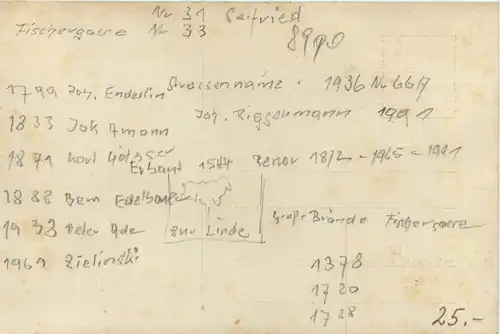 Nr 31 Seifried
Fischergasse Nr 33
8990
1799 Joh. Enderlin Strassenname 1936 Nr 66A
Joh. Riggenmann 1991
1833 Joh Amann
1871 Karl
Erbaut 1544 Renov 1812 - 1965 - 1991
1888 Bern
zur Linde
1938 Peter Ade
Große Brände Fischergasse
1969 Zielinski
1378
1720
1728
25.-